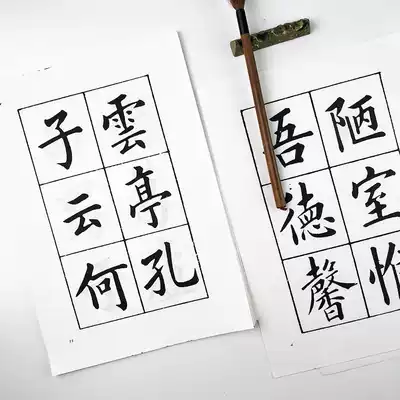 陋室惟
吾德馨
雲亭孔
子云何